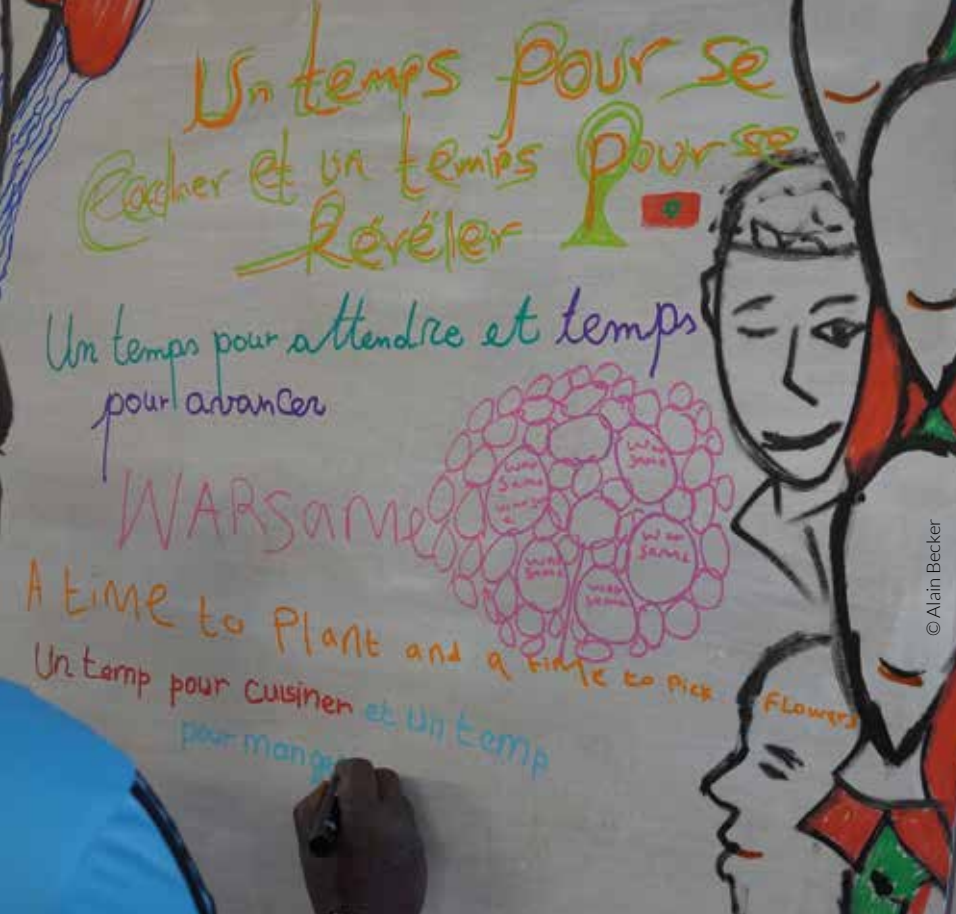 Un temps pour se
cacher et un temps pour se
Révéler
Un temps pour attendre et temps
pour avancer
WARSame
WAR
SAME
WAR
SAME
WAR
SAME
WAR
SAME
WAR
SAME
A time to Plant and a time to Pick FLowers
Un temp pour cuisiner et un temp
pour mange
© Alain Becker